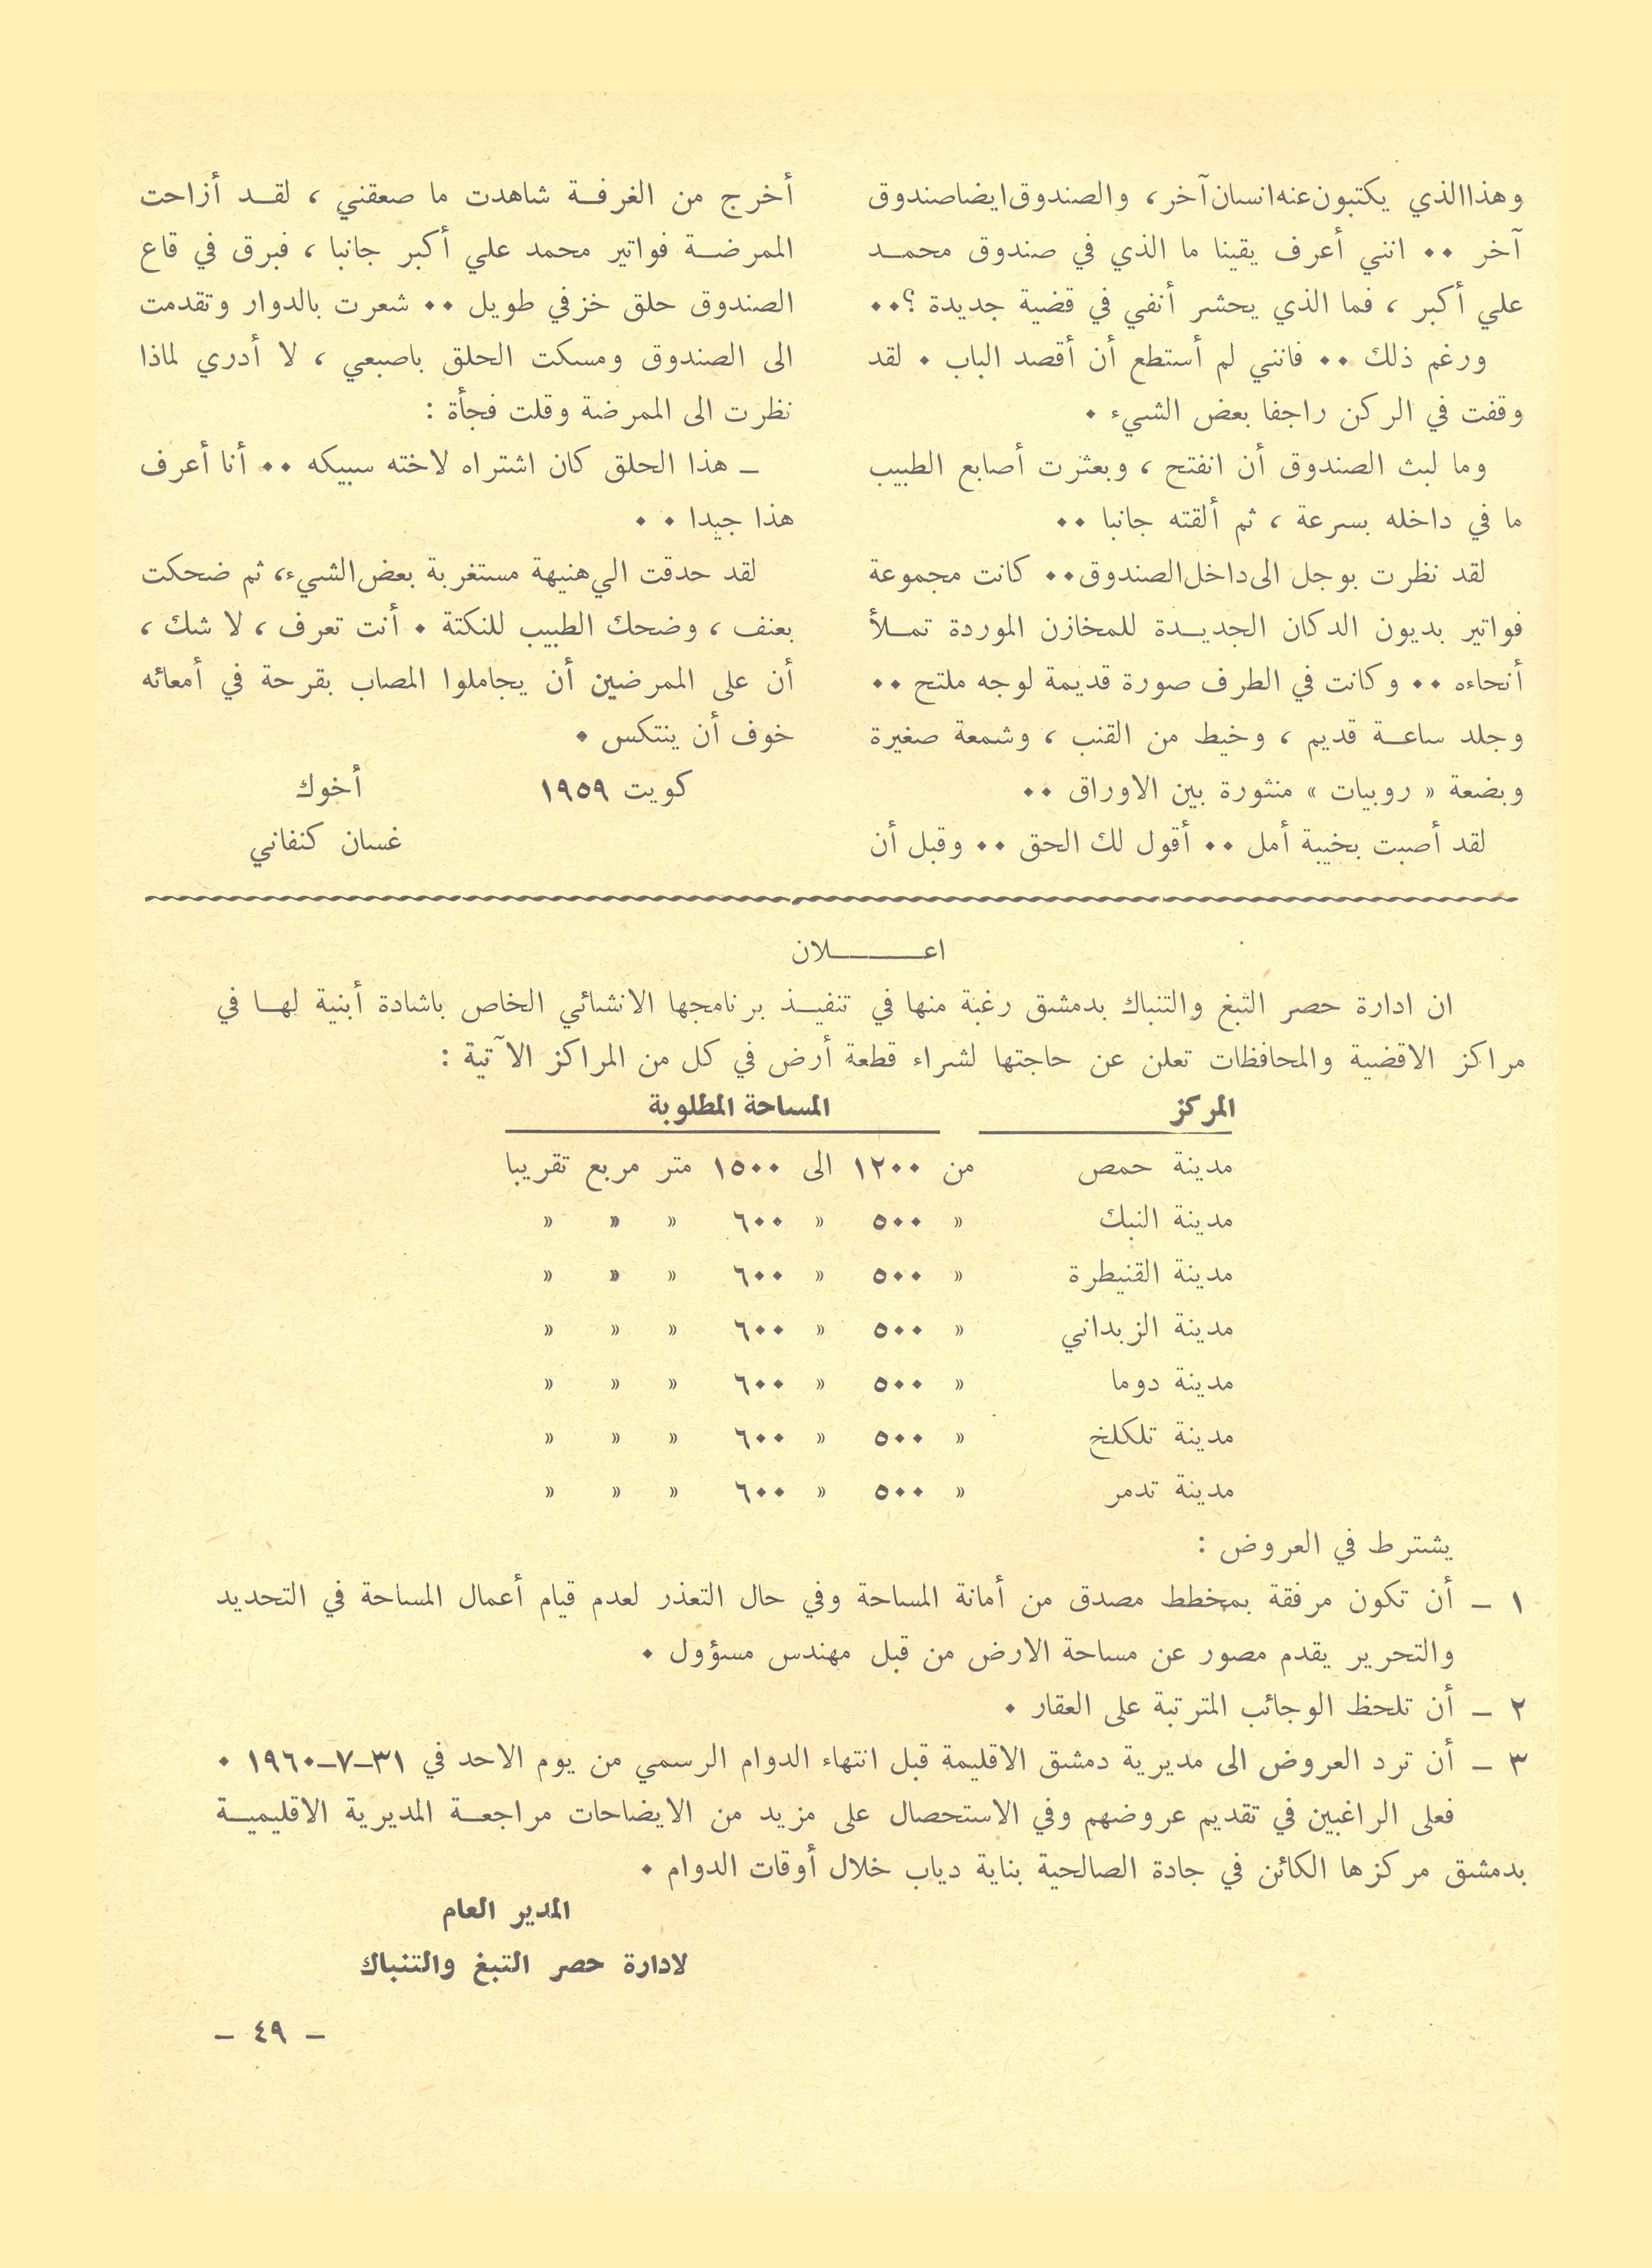 وهذا الذي يكتبون عنه انسان آخر ، والصندوق ايضا صندوق
آخر ٠٠ انني أعرف يقينا ما الذي في صندوق محمــد
علي أكبر ، فما الذي يحشر أنفي في قضية جديدة ؟٠٠
ورغم ذلك ٠٠ فانني لم أستطع أن أقصد الباب ٠ لقد
وقفت في الركن راجفا بعض الشيء ٠
وما لبث الصندوق أن انفتح ، وبعثرت أصابع الطبيب
ما في داخله بسرعة ، ثم ألقته جانبا ٠٠
لقد نظرت بوجل الى داخل الصندوق ٠٠ كانت مجموعة
فواتير بديون الدكان الجديــدة للمخازن الموردة تمــلأ
أنحاءه ٠٠ وكانت في الطرف صورة قديمة لوجه ملتح ٠٠
وجلد ساعــة قديم ، وخيط من القنب ، وشمعة صغيرة
وبضعة « روبيات » منثورة بين الاوراق ٠٠
لقد أصبت بخيبة أمل ٠٠ أقول لك الحق ٠٠ وقبل أن
أخرج من الغرفــة شاهدت ما صعقني ، لقــد أزاحت
الممرضــة فواتير محمد علي أكبر جانبا ، فبرق في قاع
الصندوق حلق خزفي طويل ٠٠ شعرت بالدوار وتقدمت
الى الصندوق ومسكت الحلق باصبعي ، لا أدري لماذا
نظرت الى الممرضة وقلت فجأة :
ـ هذا الحلق كان اشتراه لاخته سبيكه ٠٠ أنا أعرف
هذا جيدا ٠ ٠
لقد حدقت الي هنيهة مستغربة بعض الشيء، ثم ضحكت
بعنف ، وضحك الطبيب للنكتة ٠ أنت تعرف ، لا شك ،
أن على الممرضين أن يجاملوا المصاب بقرحة في أمعائه
خوف أن ينتكس ٠
كويت ١٩٥٩ أخوك
غسان كنفاني
اعـــــــلان
ان ادارة حصر التبغ والتنباك بدمشق رغبة منها في تنفيــذ برنامجها الانشائي الخاص باشادة أبنية لهــا في
مراكز الاقضية والمحافظات تعلن عن حاجتها لشراء قطعة أرض في كل من المراكز الآتية :
المركز المساحة المطلوبة
مدينة حمص من ١٢٠٠ الى ١٥٠٠ متر مربع تقريبا
مدينة النبك » ٥٠٠ » ٦٠٠ » » »
مدينة القنيطرة » ٥٠٠ » ٦٠٠ » » »
مدينة الزبداني » ٥٠٠ » ٦٠٠ » » »
مدينة دوما » ٥٠٠ » ٦٠٠ » » »
مدينة تلكلخ » ٥٠٠ » ٦٠٠ » » »
مدينة تدمر » ٥٠٠ » ٦٠٠ » » »
يشترط في العروض :
١ ـ أن تكون مرفقة بمخطط مصدق من أمانة المساحة وفي حال التعذر لعدم قيام أعمال المساحة في التحديد
والتحرير يقدم مصور عن مساحة الارض من قبل مهندس مسؤول ٠
٢ ـ أن تلحظ الوجائب المترتبة على العقار ٠
٣ ـ أن ترد العروض الى مديرية دمشق الاقليمة قبل انتهاء الدوام الرسمي من يوم الاحد في ٣١ـ٧ـ١٩٦٠ ٠
فعلى الراغبين في تقديم عروضهم وفي الاستحصال على مزيد من الايضاحات مراجعــة المديرية الاقليميــة
بدمشق مركزها الكائن في جادة الصالحية بناية دياب خلال أوقات الدوام ٠
المدير العام
لادارة حصر التبغ والتنباك
ـ ٤٩ ـ